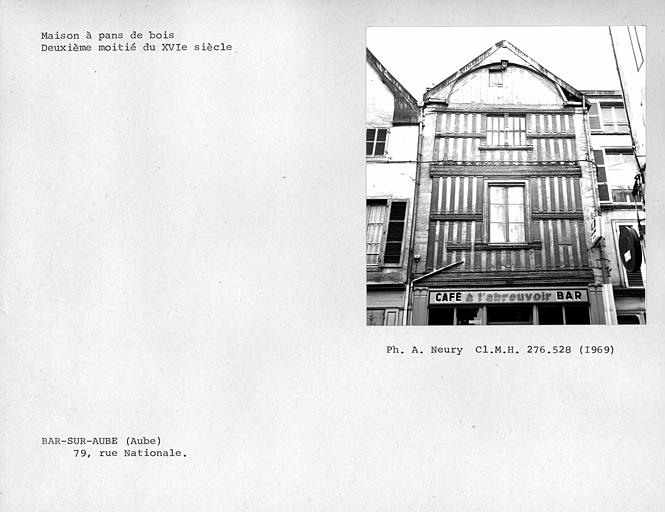 Maison à pans de bois
Deuxième moitié du XVIe siècle
CAFÉ à l'abreuvoir BAR
Ph. A. Neury Cl.M.H. 276.528 (I969)
BAR-SUR-AUBE (Aube)
79, rue Nationale.